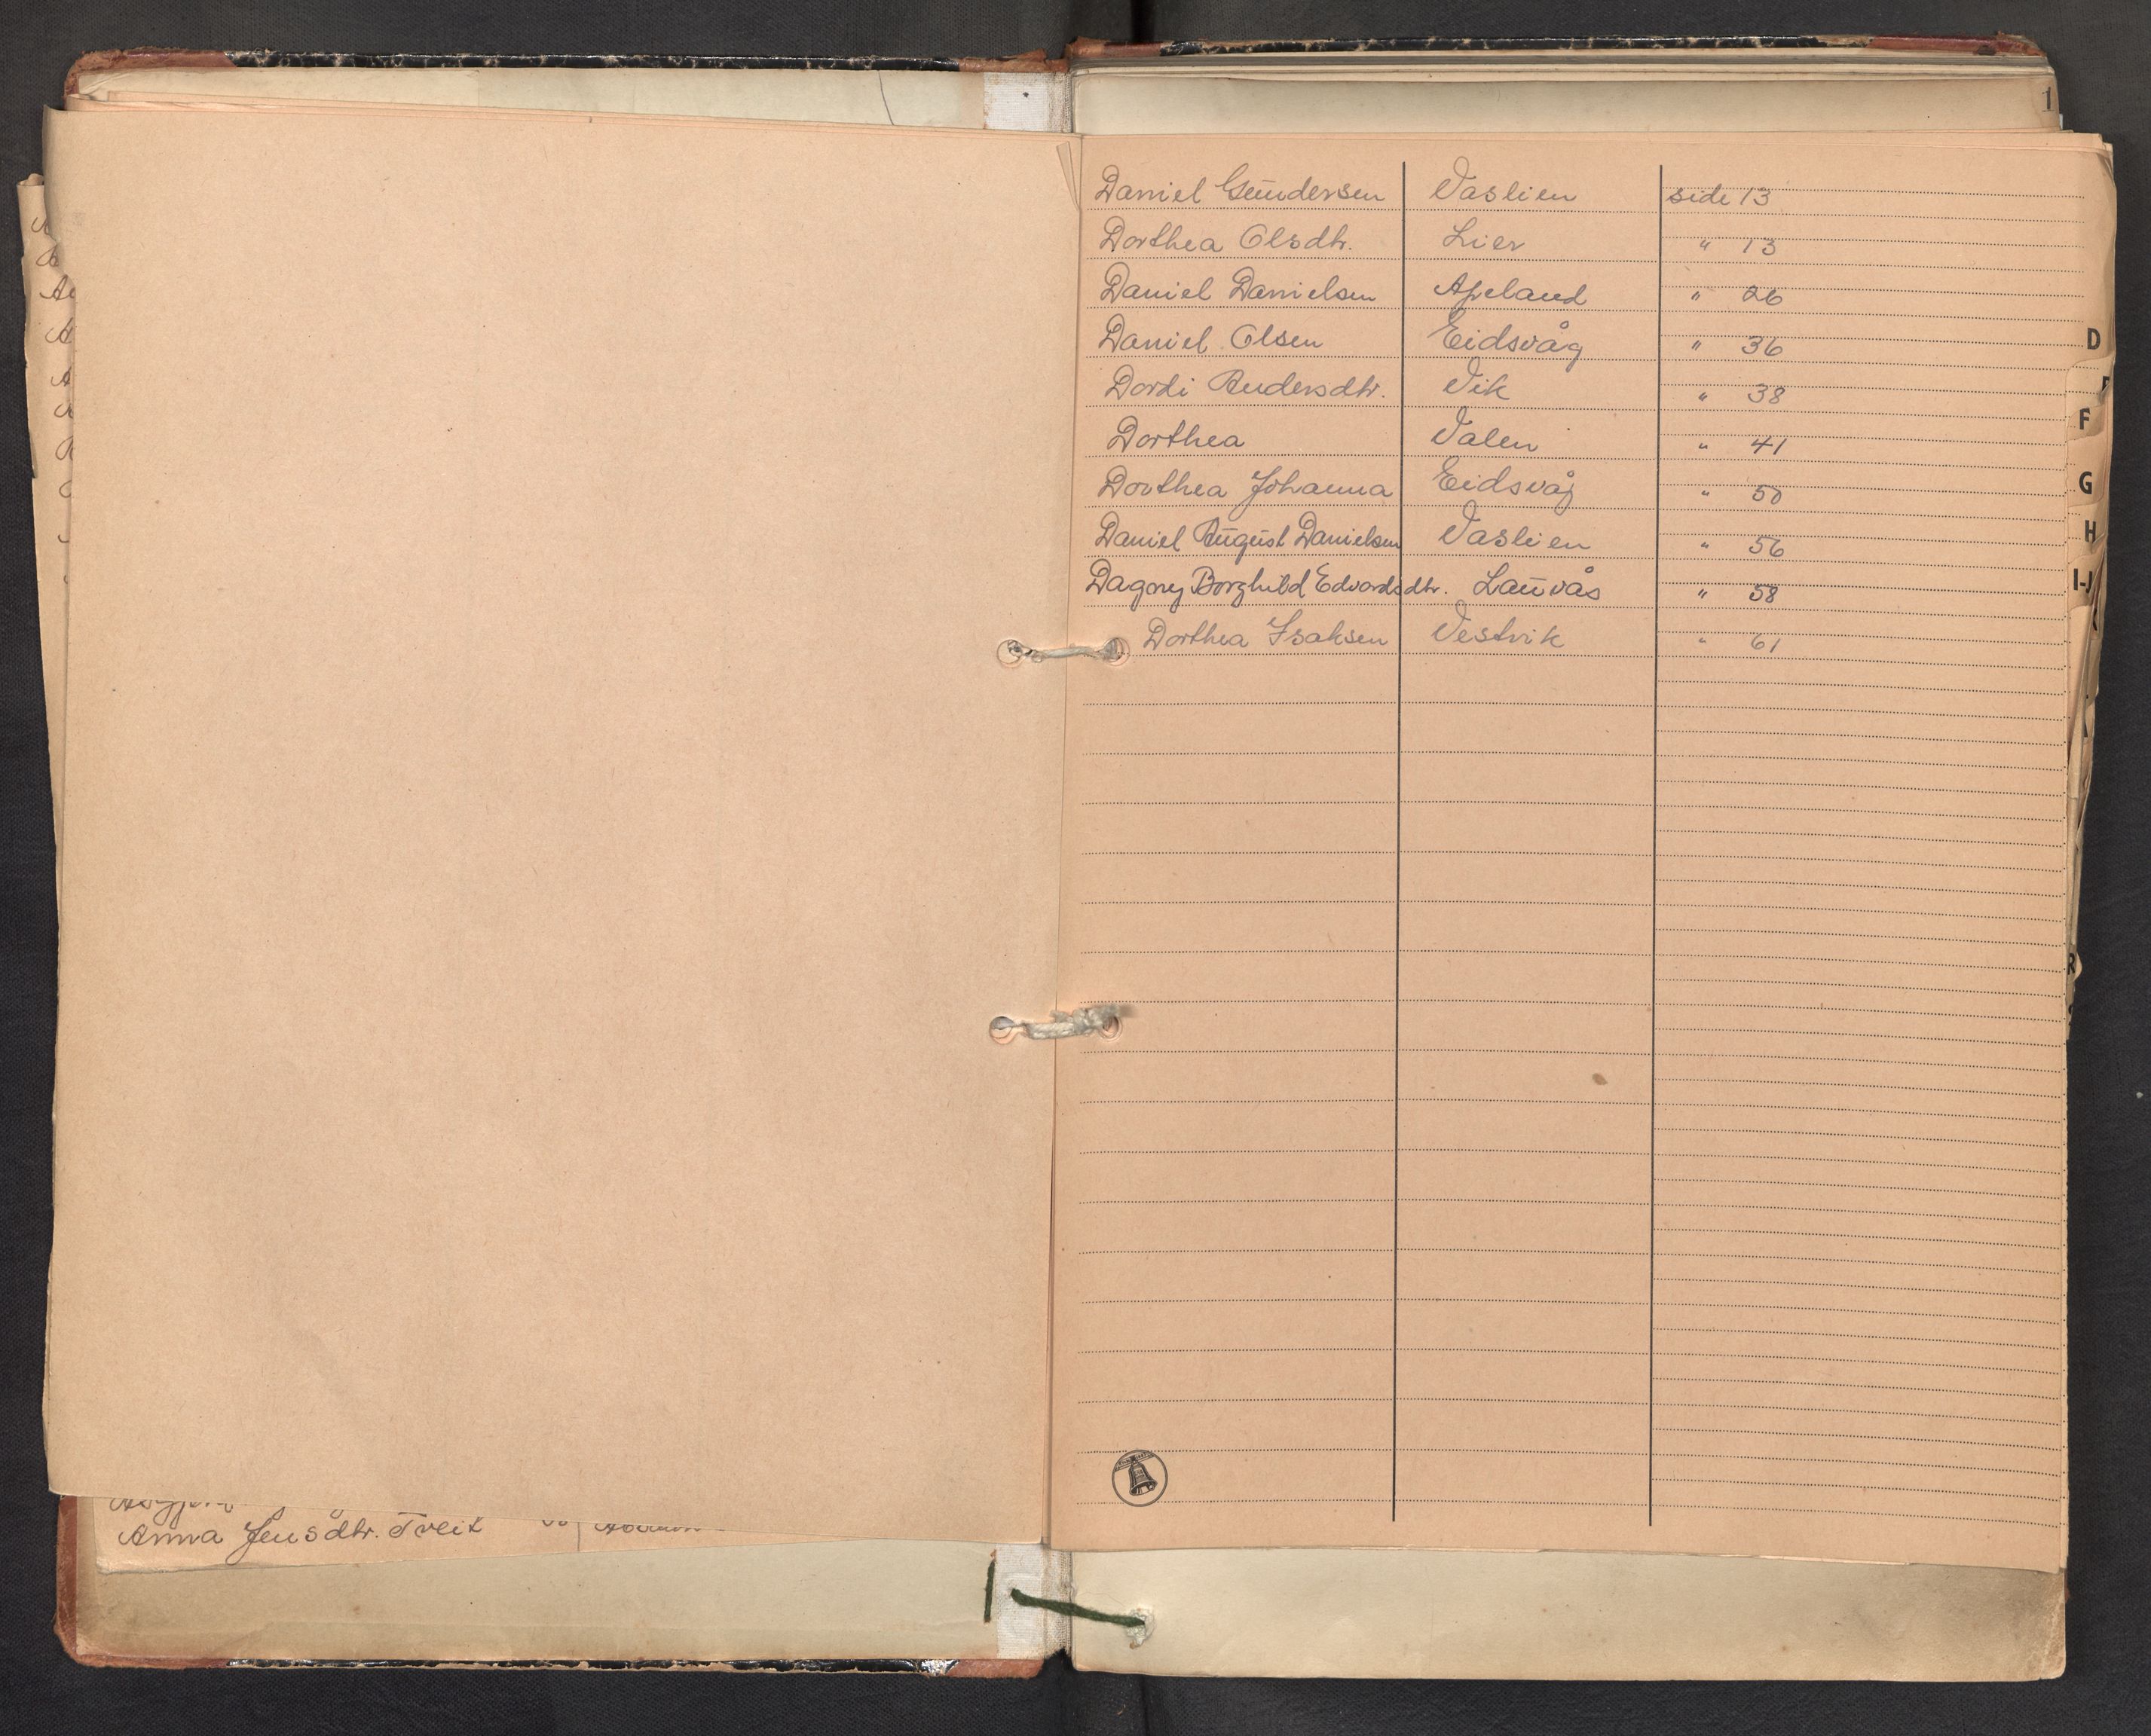 Anna Jensdtr. Tveit
1
Daniel Gundersen Vaslien side 13
Dorthea Olsdtr. Lier " 13
Daniel Danielsen Apeland " 26
Daniel Olsen Eidsvåg " 36
Dordi Andersdtr. Vik " 38
Dorthea Valen " 41
Dorthea Johanna Eidsvåg " 50
Daniel August Danielsen Vaslien " 56
Dagny Borghild Edvardsdtr. Lauvås " 58
Dorthea Isaksen Vestvik " 61
D
F
G
H
I-J
R